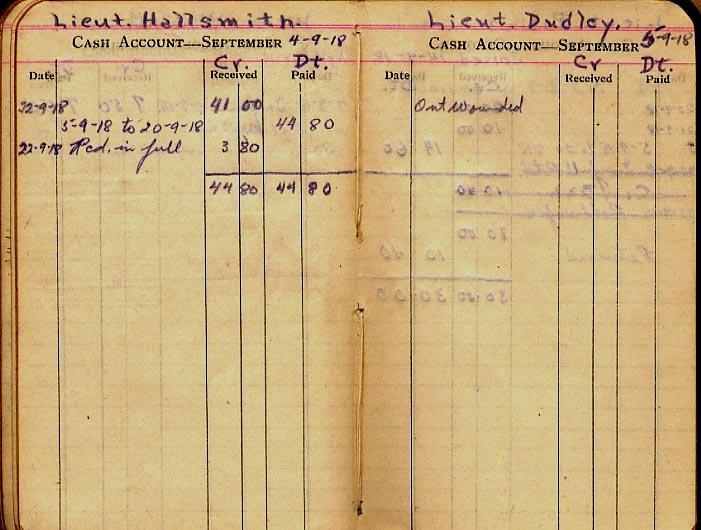 Lieut. Hallsmith.
CASH ACCOUNT—SEPTEMBER 4-9-18
Cr. Dt.
Date Received Paid
22-9-18 41 00
5-9-18 to 20-9-18 44 80
22-9-18 Pcd. in full 3 80
44 80 44 80
Lieut. Dudley.
CASH ACCOUNT—SEPTEMBER 5-9-18
Cr Dt.
Date Received Paid
Out wounded